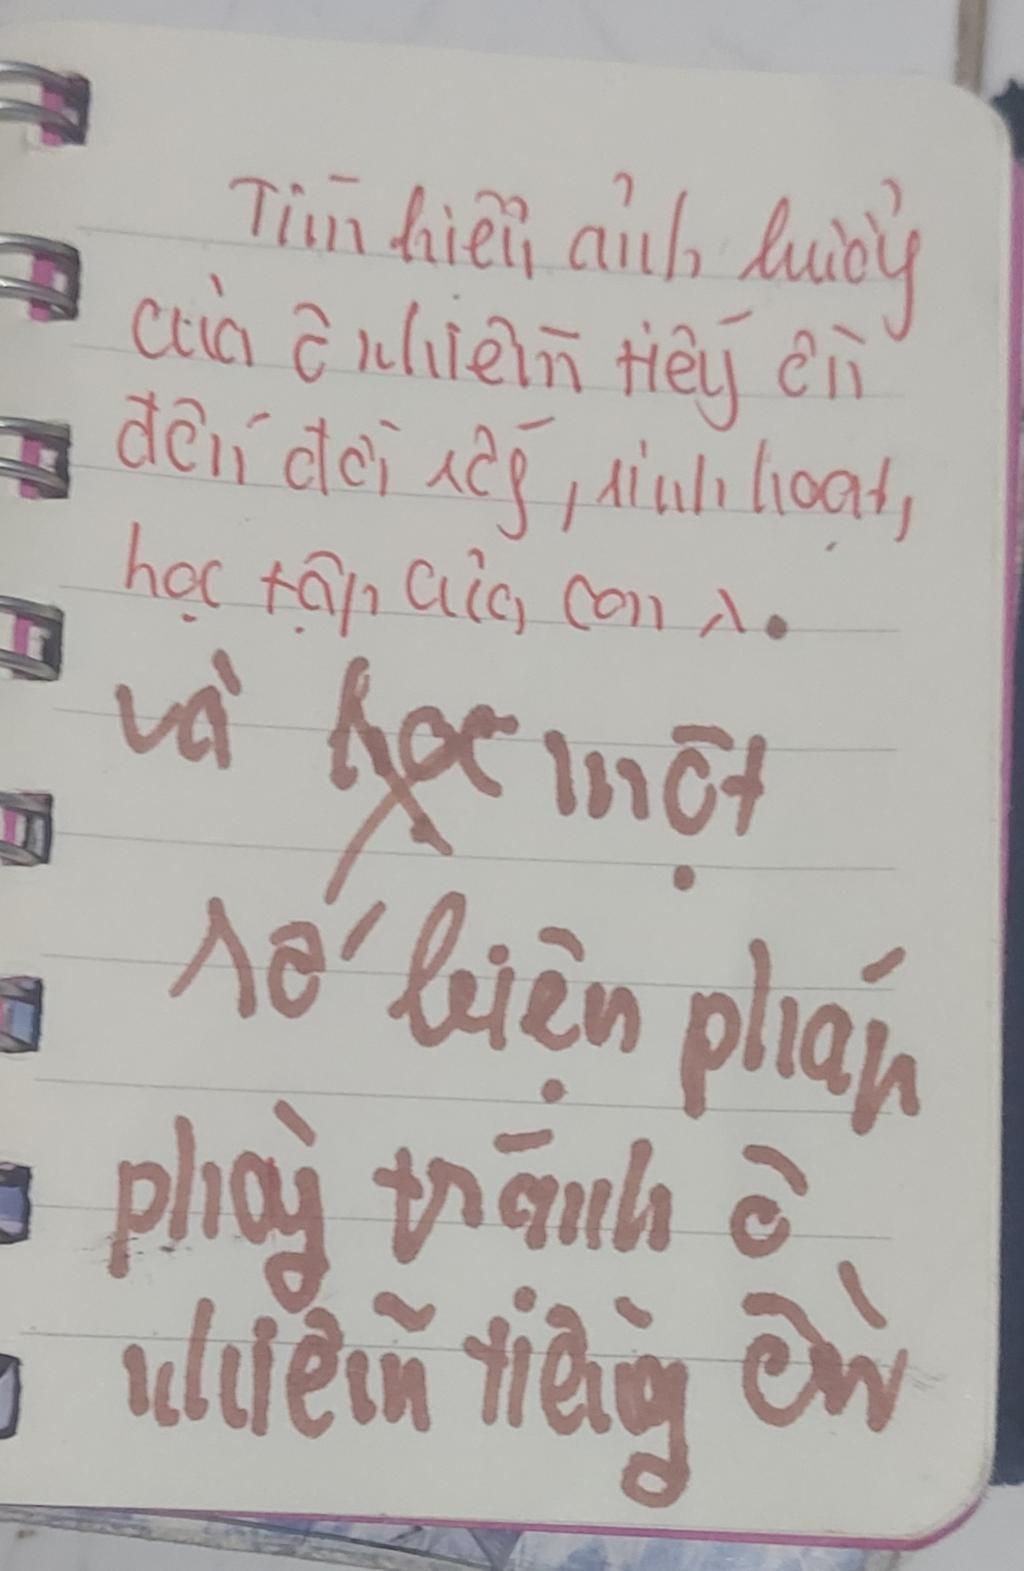 Tìm hiểu ảnh hưởng
của ô nhiễm tiếng ồn
đến đời sống, sinh hoạt,
học tập của con
và học một
số biện pháp
phòng tránh ô
nhiễm tiếng ồn